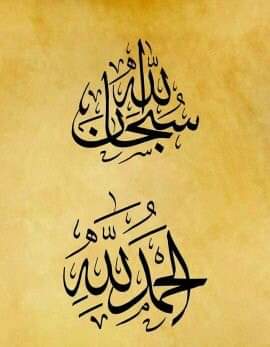 سُبْحَانَ اللّٰه
الحَمْدُ لِلّٰهِ